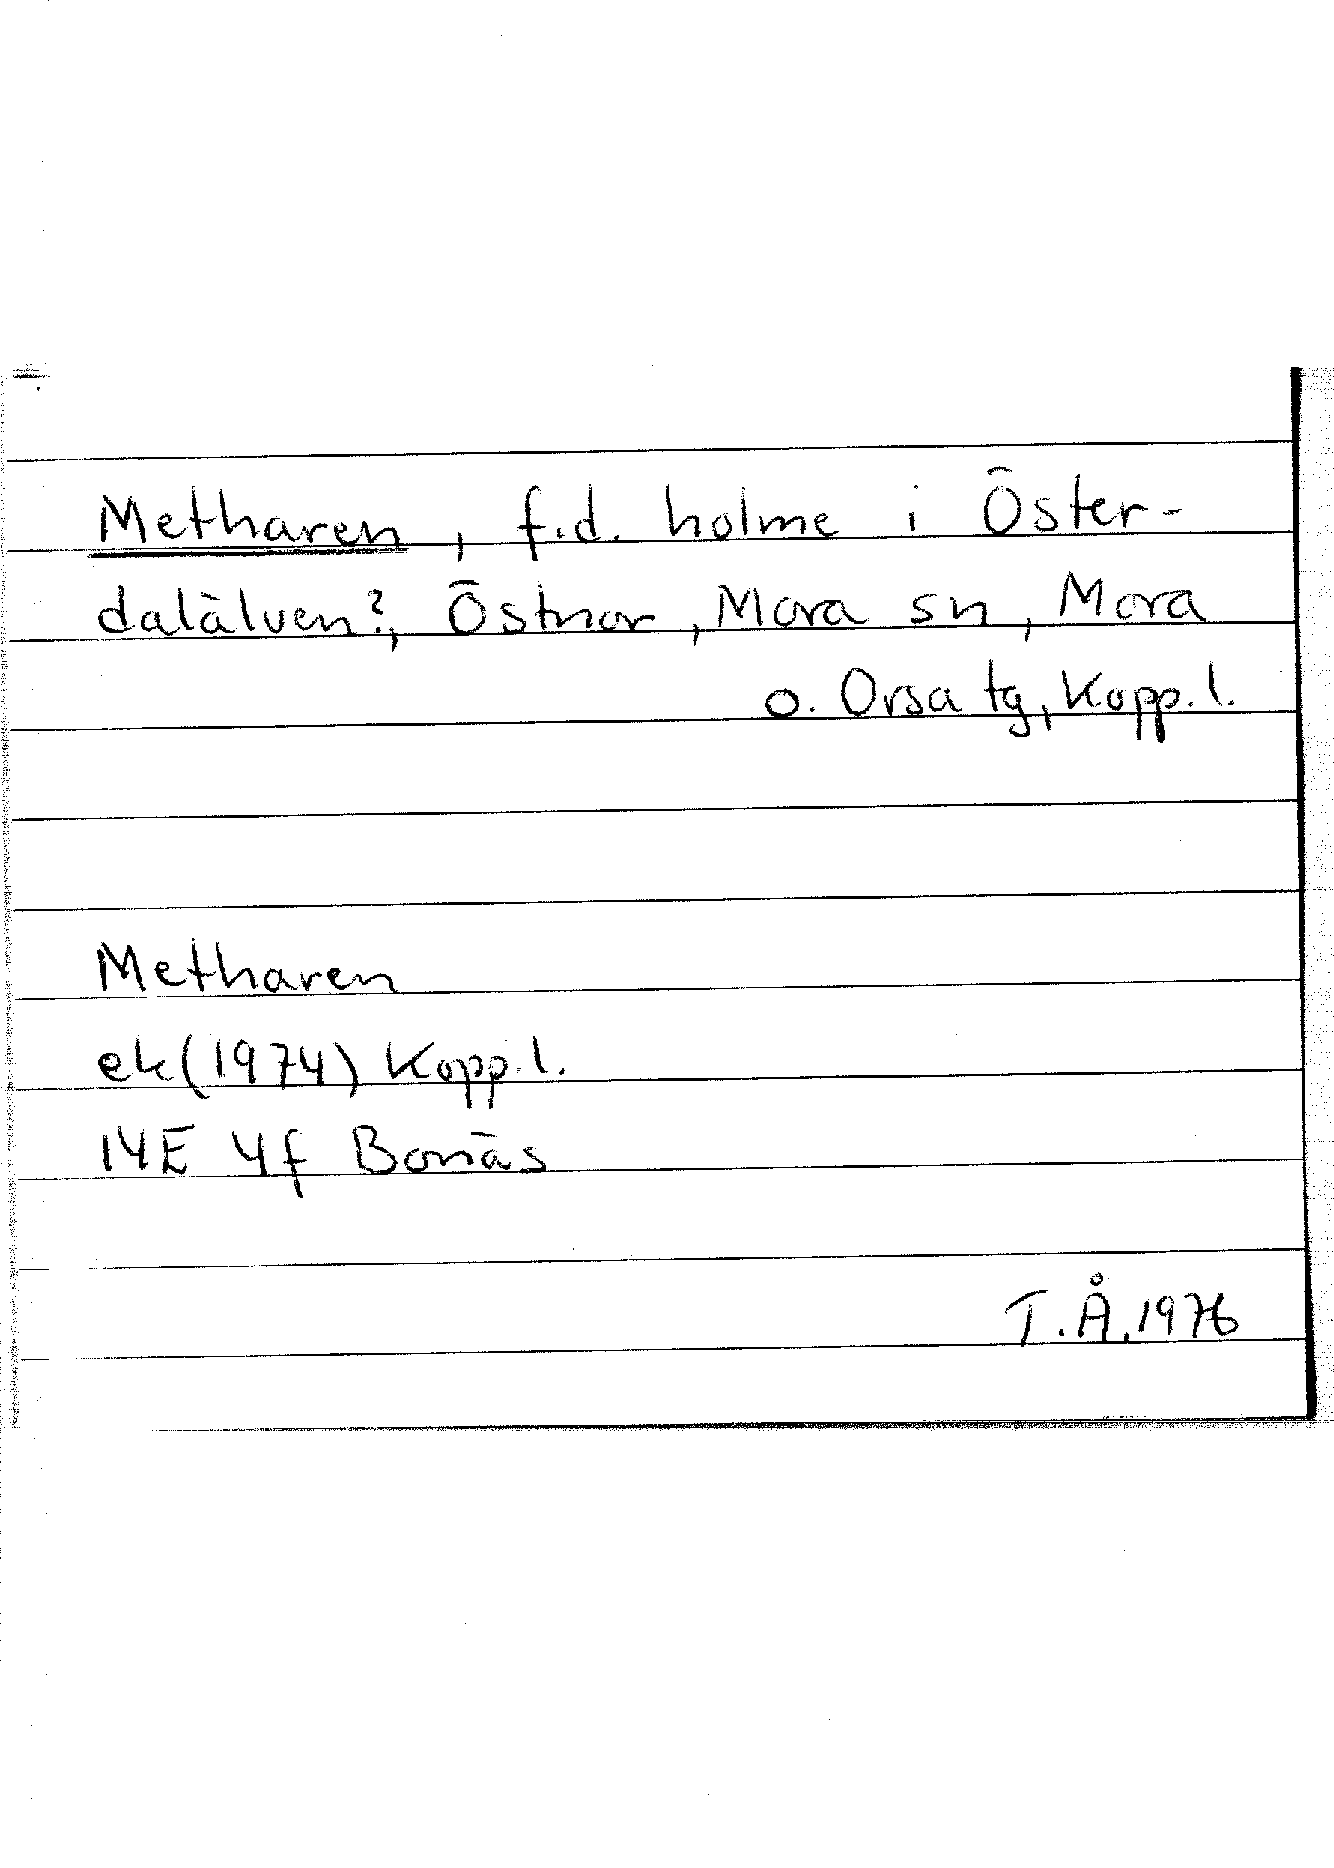 Metharen, f.d. holme i Öster-
dalälven?, Östnor, Mora sn, Mora
o. Orsa tg, Kopp. l.
Metharen
ek (1974) Kopp. l.
14E 4f Bonäs
T.Å. 1976